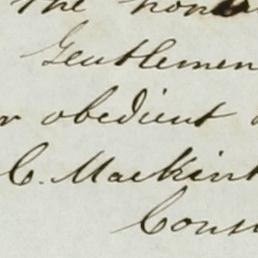 the hono
Gentlemen
r obedient
C. Mackint
Cons